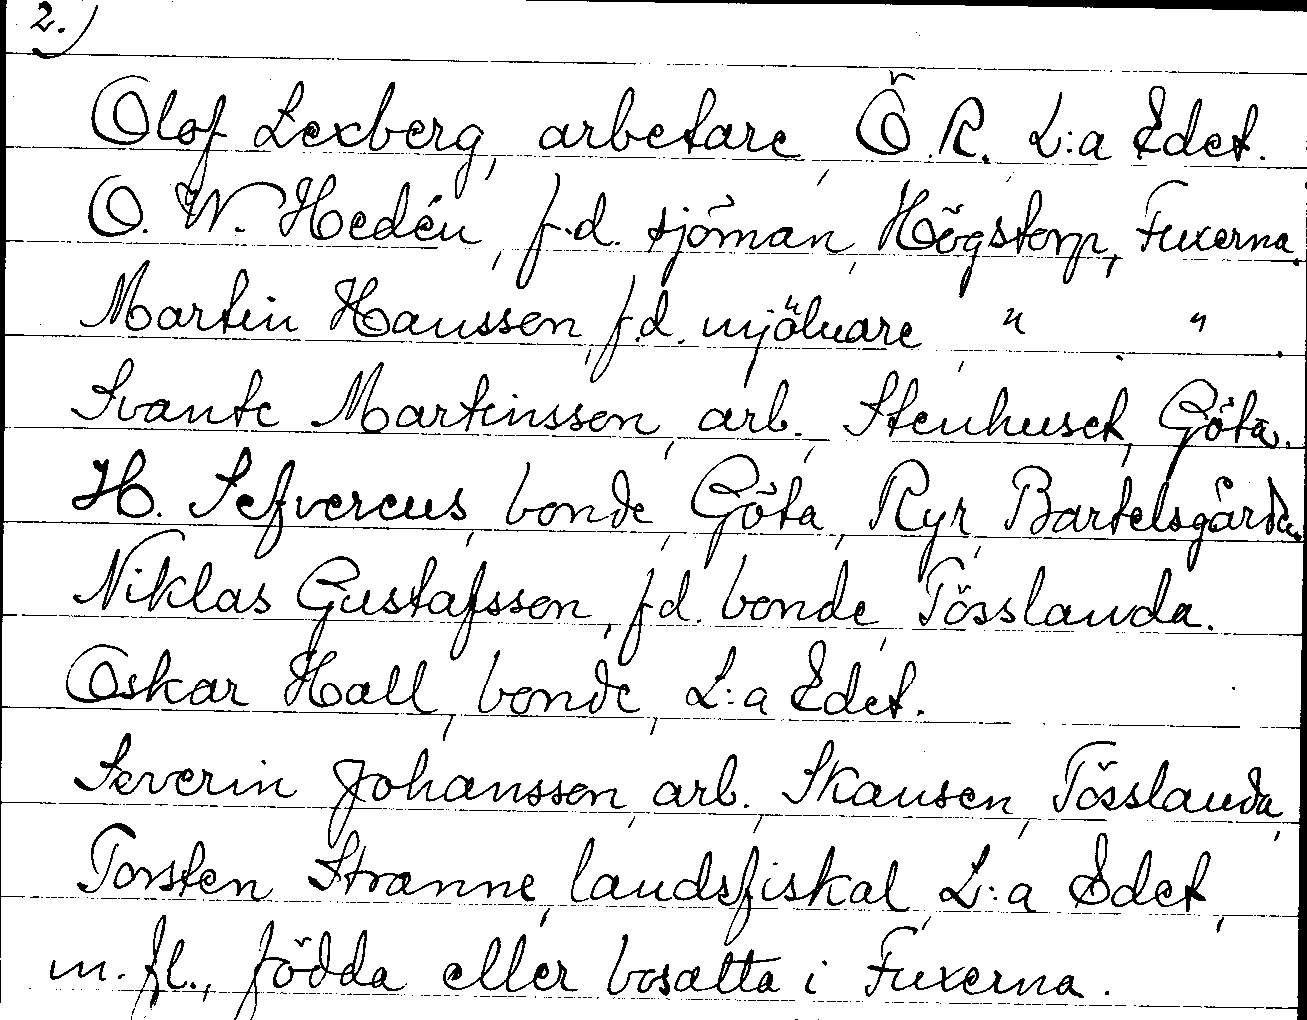 2.)
Olof Lexberg, arbetare, Ö. R. L:a Edet.
O. W. Hedén, f.d. sjöman, Högstorp, Fuxerna.
Martin Hansson, f.d. mjölnare, " " .
Svante Martinsson, arb., Stenhuset, Göta.
H. Sefvereus, bonde, Göta, Ryr, Bartelsgården.
Niklas Gustafsson, f.d. bonde, Tösslanda.
Oskar Hall, bonde, L:a Edet.
Severin Johansson, arb., Skansen, Tösslanda,
Torsten Stranne, landsfiskal, L:a Edet,
m. fl., födda eller bosatta i Fuxerna.